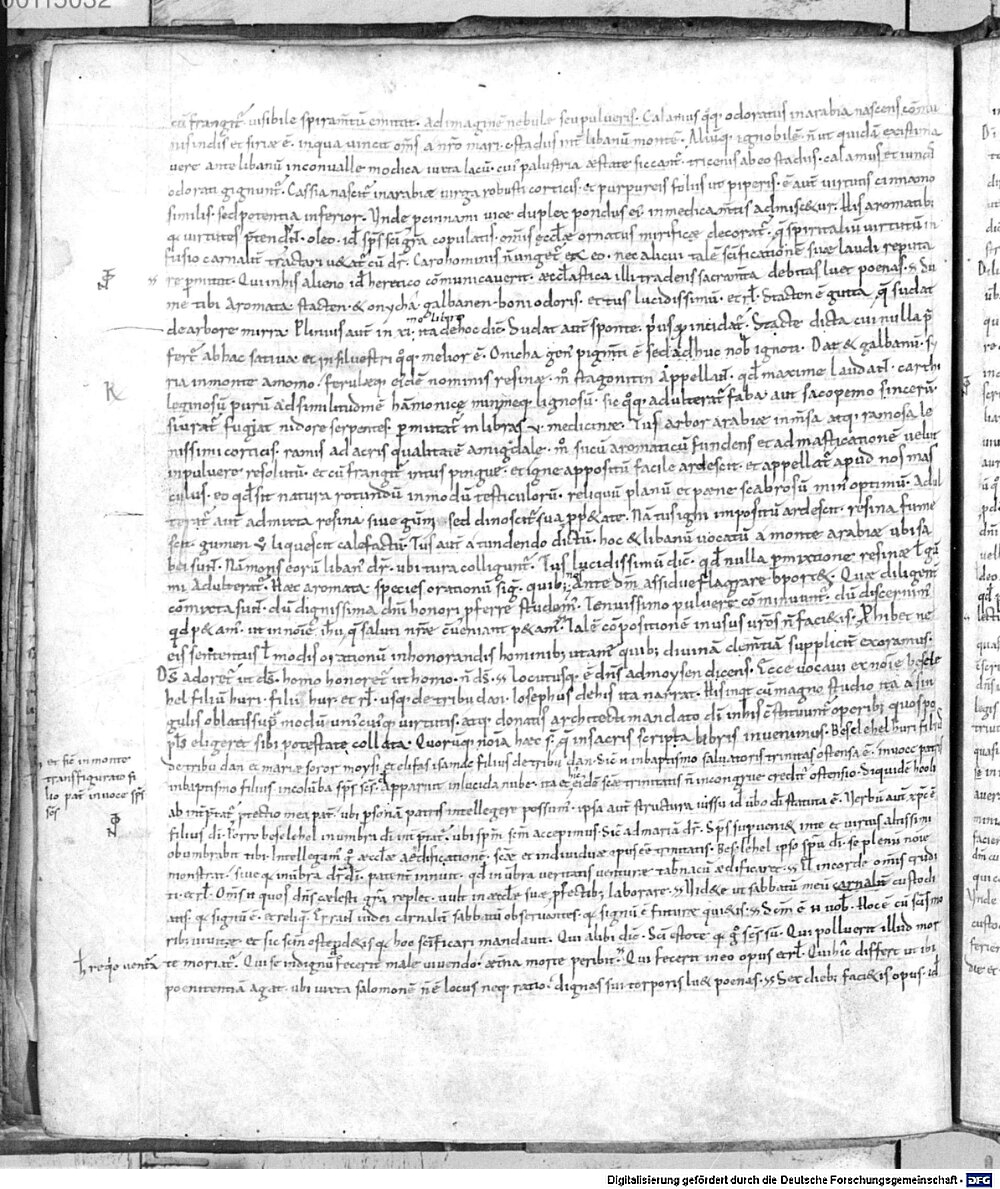 cū frangit̄. visibile spiram̄tū emittat. ad imaginē nebule seu pulveris. Calamus q̄q. odoratus in arabia nascens cōmu
nis indis et siriae ē. in qua vincit om̄s a nr̄o mari. c. stadiis int̄ libanū montē. Aliūq. ignobilē. n̄ ut quidā existima
vere ante libanū in convalle modica iuxta lacū. cui palustria aestate siccant̄. tricenis ab eo stadiis. calamus et iuncus
odorati gignunt̄. Cassia nascit̄ in arabiae virga robusti corticis. et purpureis foliis ut piperis. ē aut̄ virtutis cinnamo
similis. sed potentia inferior. Unde p cinnami vice duplex pondus ei in medicam̄tis admisc&ur. His aromatib;
oleo. id sp̄s sc̄i gr̄a copulatis. om̄is eccl̄ae ornatus mirificae decorat̄. q̄ spiritaliū virtutū in
fusio carnaliū tractari v&at̄ cū dr̄. Caro hominis n̄ unget̄ ex eo. nec alicui talē sc̄ificationē suae laudi reputa
re p̄mittat. Qui in his alieno id heretico cōmunicaverit. aecclastica illi tradens sacram̄ta debitas luet poenas. Su
me tibi Aromata stacten. & onycha. galbanen. boni odoris. et tus lucidissimū. et rl̄. Stacten ē gutta q̄ sudat
de arbore mirra. Plinius aut̄ in xi. mo libro ita de hoc dic̄. Sudat aut̄ sponte. p̄ius q̄ incidat̄. Stacte dicta cui nulla p̄
fert̄ ab hac sativa et in silvestri q̄q. melior ē. Onicha gen̄ pigm̄ti ē sed adhuc nob̄ ignoti. Dat & galbanū. sy
ria in monte amomo. ferulaeq. eiusdē nominis resinae. stagonitin appellat̄. qd̄ maxime laudat̄. carthi
leginosū purū ad similitudinē hamonice minimeq. lignosū. sic q̄q. adulterat̄ faba aut sacopemo sincerū
si urat̄ fugiat nidore serpentes. p̄mutat̄ in libras v. medicinae. Tus arbor arabiae inm̄sa atq. ramosa le
nissimi corticis. ramis ad acris qualitatē amigdale. sucū aromaticū fundens et ad masticationē velut
in pulvere resolutū. et cū frangit̄ intus pingue. et igne appositū facile ardescit. et appellat̄ apud nos mas
culus. eo qd̄ sit natura rotundū in modū testiculorū. reliquū planū et paene scabrosū min̄ optimū. Adul
terat̄ aut̄ admixta resina sive gūmi sed dinoscit̄ sua pp̄&ate. Nā tus igni impositū ardescit. resina fume
scit. gumen v̄ liquescit calefactū. Tus aut̄ a tundendo dictū. hoc & libanū vocatū a monte arabiae ubi sa
bei sunt. Nā mons eorū liban̄ dr̄. ubi tura colligunt̄. Tus lucidissimū dic̄. qd̄ nulla p̄mixtione resinae l̄ gū
mi Adulterat̄. Haec aromata species orationū sig̃. quib; ante dm̄ assiduae flagrare oport&. Quae diligent̄
cōmixta sunt. dū dignissima dn̄i honori p̄ferre studem̄. Tenuissimo pulvere cōminuunt̄. dū discernim̄
qd p&am̄. ut in noīe ihū q̄ saluti nr̄ae cveniant p&am̄. Talē cōpositionē in usus vr̄os n̄ faci&is. Phibet ne
eis sententiis l̄ modis orationū in honorandis hominib; utam̄ quib; divinā clem̄tiā suppliciter exoramus.
Ds̄ adoret̄ ut ds̄. homo honoret̄ ut homo. n̄ ds̄. Locutusq. ē dn̄s ad moysen dicens. Ecce vocavi ex noīe besele
hel filiū huri. filiū hur et rl̄. usq. de tribu dan. Iosephus de his ita narrat. His inq̄t cū magno studio ita a sin
gulis oblatis sup̄ modū unicuiq. virtutis. atq. donatis architecti mandato dī in his c̄stituunt̄ operib; quos po
pl̄s eligeret sibi potestate collata. Quorūq. noīa haec s̄. q̄ in sacris scripta libris invenimus. Beselehel huri filiū
de tribu dan et mariae soror moysi. et elifas isamac filius de tribu dan. Sic n̄ in baptismo salvatoris trinitas ostensa ē. in voce patris
in baptismo filius in colūba sp̄s sc̄s. Apparuit in lucida nube. ita et eidē sc̄ae trinitatis n̄ incongrue credit̄ ostensio. Siquidē hooli
ab int̄p̄tat̄ p̄tectio mea pat̄. ubi p̄sonā patris intellegere possum̄. ipsa aut̄ structura iussu id v̄bo dī statuta ē. Verbū aut̄ xp̄c ē
filius dī. Porro beselehel in umbra dī int̄p̄tat̄. ubi sp̄m sc̄m accepimus. Sic ad mariā dr̄. Sp̄s sup̄veni& in te et virtus altissimi
obumbrabit tibi. Intellegam̄ ḡ aecclae aedificatione. sc̄ae et individuae opus eē trinitatis. Beselehel ipso sp̄u dī. se plenū novē
monstrat. sive q. in ūbra dr̄ dī. patent̄ innuit. qd̄ in ūbra veritatis venturae tabnaculū aedificaret.
ti. et rl̄. Om̄s n̄ quos dn̄s caelesti gr̄a replet. vult in aeccl̄ae suae p̄fectib; laborare. Vid&e ut sabbatū meū carnaliū custodi
atis. q. signū ē. et reliq. Errant iudei carnaliū sabbatū observantes. q. signū ē futurae qui&is. Scm̄ ē n̄ vob̄. Hoc ē cū sc̄issimo
rib; vivitae. et sic sc̄m ostend&is q. hoc sc̄ificari mandavit. Qui alibi dic̄. Sc̄i estote q. ḡ sc̄s sū. Qui polluerit illud mor
te moriat̄. Qui se indignū fecerit male vivendo. aet̄na morte peribit. Qui fecerit in eo opus et rl̄. Qui hīc differt ut ibi
poenitentiā agat. ubi iuxta salomonē n̄ ē locus neq. ratio. dignas sui torporis lu& poenas. Sex dieb; faci&is opus. id
et sic in monte
transfigurato fi
lio pat̄ in voce sp̄s
sc̄s